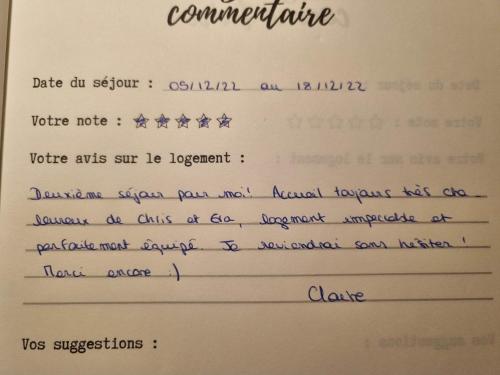 commentaire
Date du séjour : 05/12/22 au 18/12/22
Votre note :
Votre avis sur le logement :
Deuxième séjour pour moi! Accueil toujours très cha-
leureux de Chris et Eva, logement impeccable et
parfaitement équipé. Je reviendrai sans hésiter !
Merci encore :)
Claire
Vos suggestions :